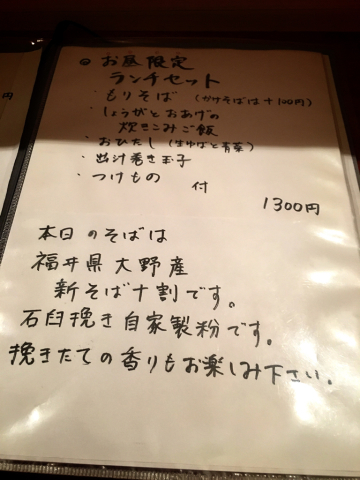 円
◎ お昼限定
ランチセット
・もりそば (かけそばは+100円)
・しょうがとおあげの
炊きこみご飯
・おひたし (生ゆばと青菜)
・出汁巻き玉子
・つけもの
付
1300円
本日のそばは
福井県大野産
新そば十割です。
石臼挽き自家製粉です。
挽きたての香りもお楽しみ下さい。